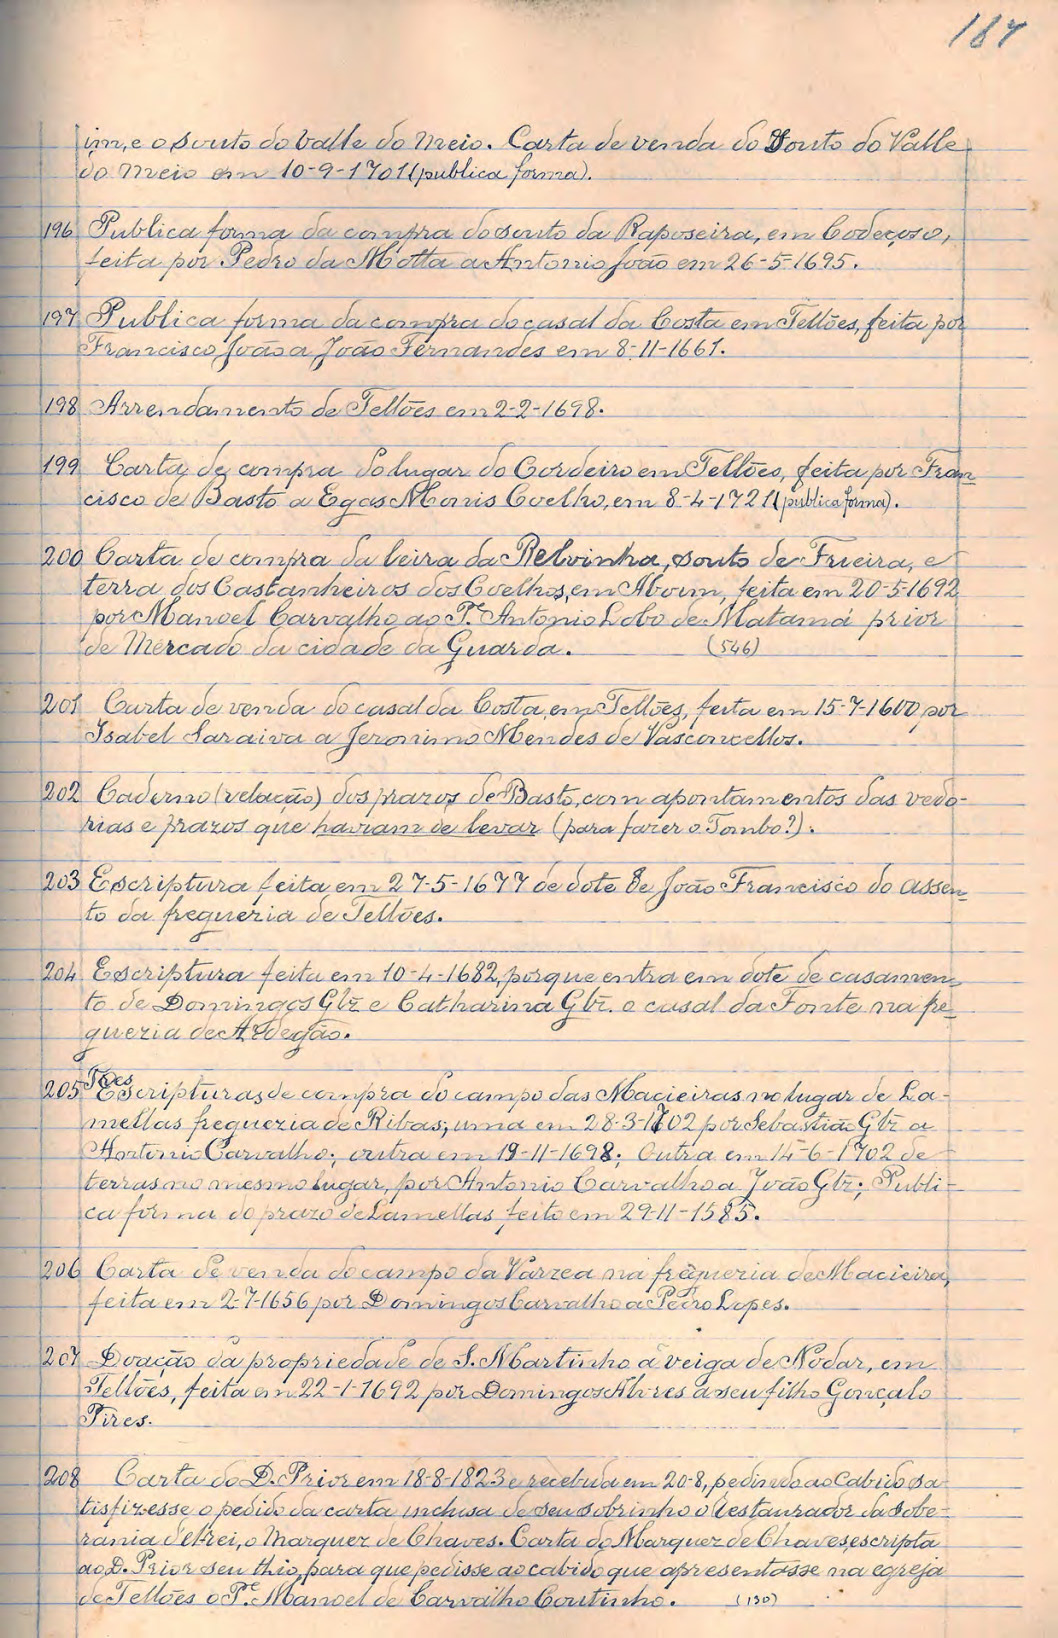 187
im, e o souto do Valle do Meio. Carta de venda do Souto do Valle
do Meio em 10-9-1701 (publica forma).
196 Publica forma da compra do souto da Raposeira, em Codeçoso,
feita por Pedro da Motta a Antonio João em 26-5-1695.
197 Publica forma da compra do casal da Costa em Tellões, feita por
Francisco João a João Fernandes em 8-11-1661.
198 Arrendamento de Tellões em 2-2-1698.
199 Carta de compra do lugar do Cordeiro em Tellões, feita por Fran=
cisco de Basto a Egas Monis Coelho, em 8-4-1721 (publica forma).
200 Carta de compra da leira da Relvinha, souto de Frieira, e
terra dos Castanheiros dos Coelhos, em Aboim, feita em 20-5-1692
por Manoel Carvalho ao Pe. Antonio Lobo de Matamá prior
de Mercado da cidade da Guarda. (546)
201 Carta de venda do casal da Costa, em Tellões, feita em 15-7-1600 por
Isabel Saraiva a Jeronimo Mendes de Vasconcellos.
202 Caderno (relação) dos prazos de Basto, com apontamentos das vedo-
rias e prazos que haviam de levar (para fazer o Tombo?).
203 Escriptura feita em 27-5-1677 de dote de João Francisco do assen=
to da freguezia de Tellões.
204 Escriptura feita em 10-4-1682, porque entra em dote de casamen=
to de Domingos Glz e Catharina Glz. o casal da Fonte na fre=
guezia de Ardegão.
205 Tres Escripturas de compra do campo das Macieiras no lugar de La-
mellas freguezia de Ribas; uma em 28-3-1702 por Sebastião Glz a
Antonio Carvalho; outra em 19-11-1698; Outra em 14-6-1702 de
terras no mesmo lugar, por Antonio Carvalho a João Glz; Publi-
ca forma do prazo de Lamellas feito em 29-11-1585.
206 Carta de venda do campo da Varzea na freguezia de Macieira,
feita em 2-7-1656 por Domingos Carvalho a Pedro Lopes.
207 Doação da propriedade de S. Martinho á veiga de Nodar, em
Tellões, feita em 22-1-1692 por Domingos Alvres a seu filho Gonçalo
Pires.
208 Carta do D. Prior em 18-8-1823 e recebida em 20-8, pedindo ao Cabido sa-
tisfizesse o pedido da carta inclusa de seu sobrinho o restaurador da sobe-
rania d'elrei, o Marquez de Chaves. Carta do Marquez de Chaves, escripta
ao D. Prior seu thio, para que pedisse ao cabido que apresentasse na egreja
de Tellões o Pe. Manoel de Carvalho Coutinho. (130)